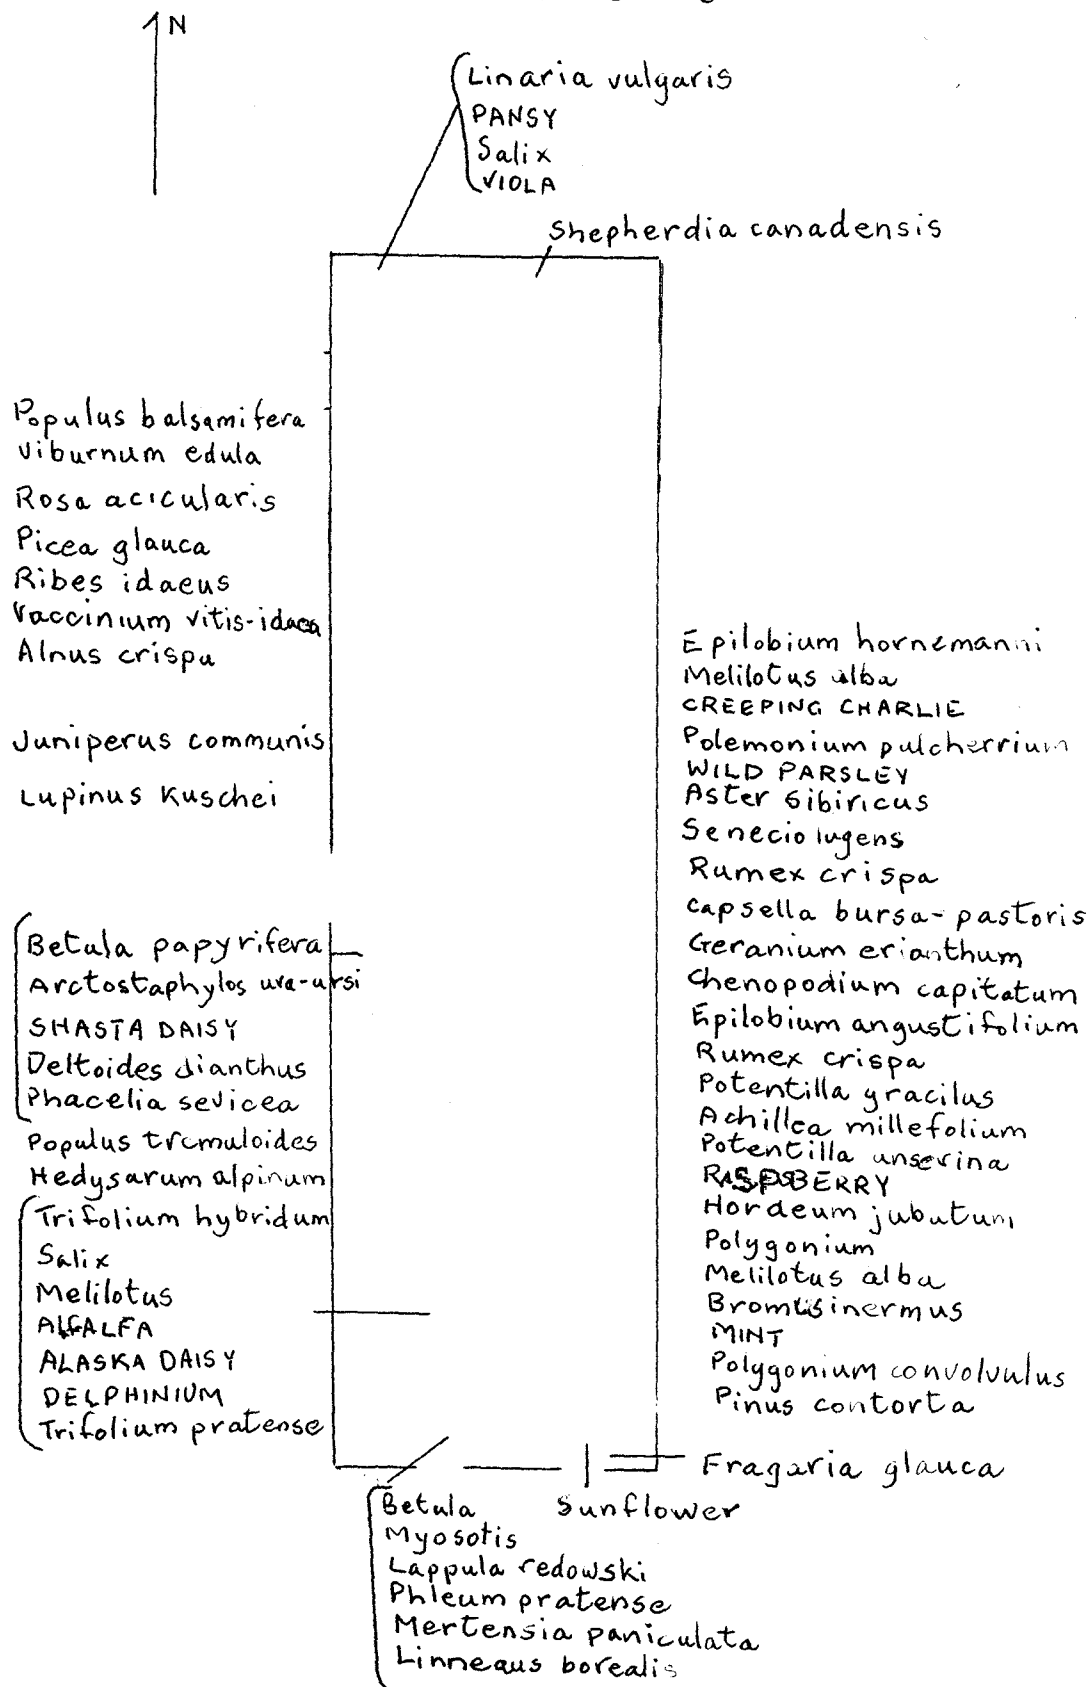 N
Linaria vulgaris
PANSY
Salix
VIOLA
Shepherdia canadensis
Populus balsamifera
Viburnum edula
Rosa acicularis
Picea glauca
Ribes idaeus
Vaccinium vitis-idaea
Alnus crispa
Juniperus communis
Lupinus Kuschei
Betula papyrifera
Arctostaphylos uva-ursi
SHASTA DAISY
Deltoides dianthus
Phacelia sevicea
Populus tremuloides
Hedysarum alpinum
Trifolium hybridum
Salix
Melilotus
ALFALFA
ALASKA DAISY
DELPHINIUM
Trifolium pratense
Epilobium hornemanni
Melilotus alba
CREEPING CHARLIE
Polemonium pulcherrium
WILD PARSLEY
Aster sibiricus
Senecio lugens
Rumex crispa
Capsella bursa-pastoris
Geranium erianthum
Chenopodium capitatum
Epilobium angustifolium
Rumex crispa
Potentilla gracilus
Achillea millefolium
Potentilla anserina
RASPBERRY
Hordeum jubutum
Polygonium
Melilotus alba
Bromus inermus
MINT
Polygonium convolvulus
Pinus contorta
Fragaria glauca
Sunflower
Betula
Myosotis
Lappula redowski
Phleum pratense
Mertensia paniculata
Linneaus borealis